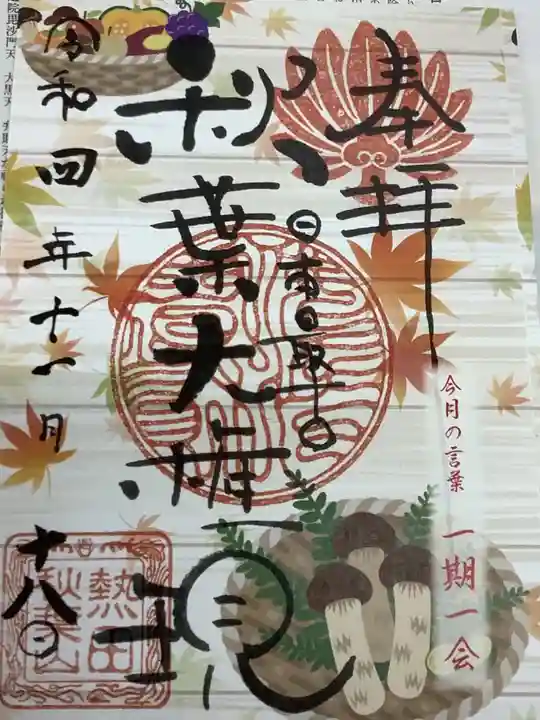 奉拝
日本日取〇
秋葉大権現
令和四年十一月
十八日
今月の言葉
一期一会
熱田
秋葉山